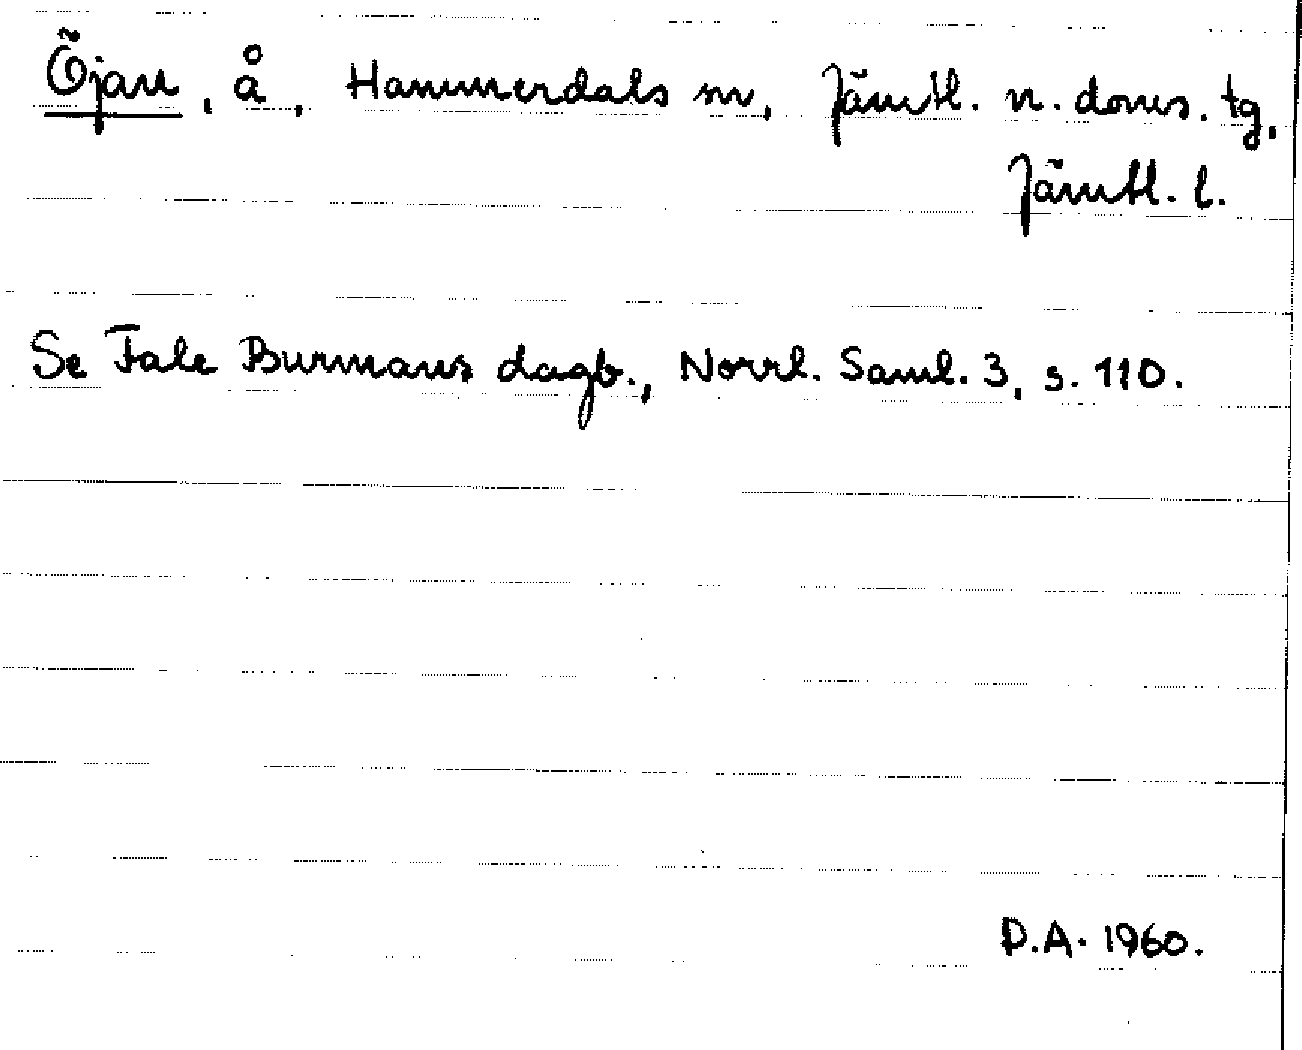 Öjan, å, Hammerdals sn, Jämtl. n. doms. tg,
Jämtl. l.
Se Fale Burmans dagb., Norrl. Saml. 3, s. 110.
D.A. 1960.